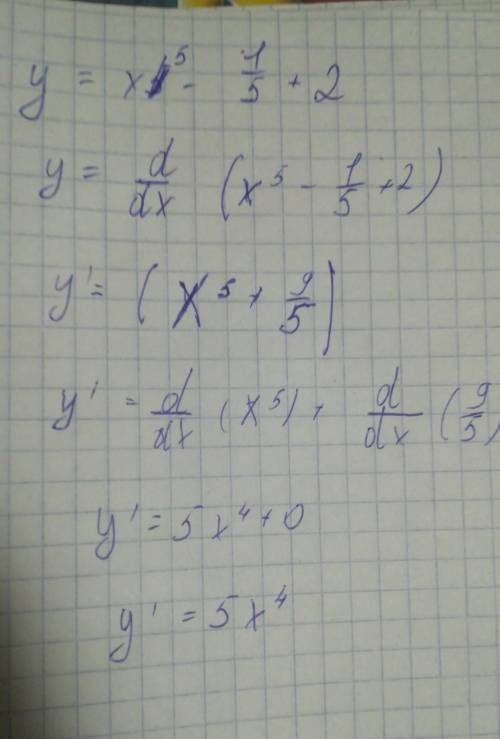 y = x⁵ - 1/5 + 2
y = d/dx (x⁵ - 1/5 + 2)
y' = (x⁵ + 9/5)
y' = d/dx (x⁵) + d/dx (9/5)
y' = 5x⁴ + 0
y' = 5x⁴